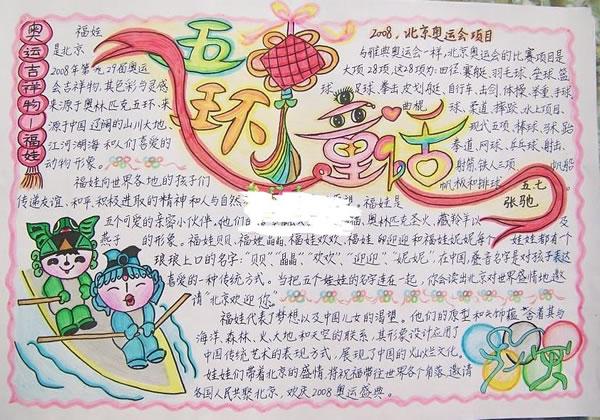 奥运吉祥物—福娃
五环童话
福娃
是北京
2008年第29届奥运
会吉祥物,其色彩与灵感
来源于奥林匹克五环、来
源于中国辽阔的山川大地、
江河湖海和人们喜爱的
动物形象。
2008,北京奥运会项目
与雅典奥运会一样,北京奥运会的比赛项目是
大项28项,这28项为:田径、赛艇、羽毛球、垒球、篮
球、足球、拳击、皮划艇、自行车、击剑、体操、举重、手球、
曲棍球、柔道、摔跤、水上项目、
现代五项、棒球、马术、跆
拳道、网球、乒乓球、射击、
射箭、铁人三项、帆船
帆板和排球
五七
张驰
福娃向世界各地的孩子们
传递友谊、和平、积极进取的精神和人与自然
望。福娃是
五个可爱的亲密小伙伴,他们的
猫、奥林匹克圣火、藏羚羊以及
燕子的形象。福娃贝贝、福娃晶晶、福娃欢欢、福娃迎迎和福娃妮妮每个娃娃都有个
琅琅上口的名字:"贝贝""晶晶""欢欢""迎迎""妮妮",在中国,叠音名字是对孩子表达
喜爱的一种传统方式。当把五个娃娃的名字连在一起,你会读出北京对世界盛情地邀
请"北京欢迎你。"
福娃代表了梦想以及中国儿女的渴望。他们的原型和头饰蕴含着其与
海洋、森林、火、大地和天空的联系,其形象设计应用了
中国传统艺术的表现方式,展现了中国的灿烂文化。
娃娃们带着北京的盛情,将祝福带往世界各个角落,邀请
各国人民共聚北京,欢庆2008奥运盛典。